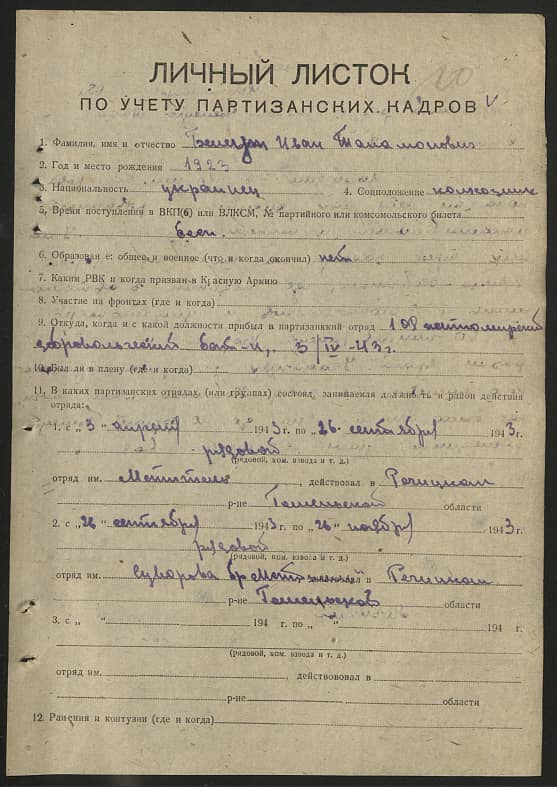 ЛИЧНЫЙ ЛИСТОК
ПО УЧЕТУ ПАРТИЗАНСКИХ КАДРОВ
1. Фамилия, имя и отчество Иван
2. Год и место рождения 1923
3. Национальность украинец 4. Соцположение колхозник
5. Время поступления в ВКП(б) или ВЛКСМ, № партийного или комсомольского билета
бесп.
6. Образование: общее и военное (что и когда окончил) нет
7. Каким РВК и когда призван в Красную Армию
8. Участие на фронтах (где и когда)
9. Откуда, когда и с какой должности прибыл в партизанский отряд 108 житомирский
добровольческий бат-н, 3/IV-43г.
10. Был ли в плену (где и когда)
11. В каких партизанских отрядах, (или группах) состоял, занимаемая должность и район действия
отряда:
1. с „3 апреля 1943 г. по „26 сентября 1943 г.
рядовой
(рядовой, ком. взвода и т. д.)
отряд им. , действовал в Речицком
р-не Гомельской области
2. с „26" сентября 1943 г. по „26" ноября 1943 г.
рядовой
(рядовой, ком. взвода и т. д.)
отряд им. Суворова в Речицком
р-не области
3. с „ " 194 г. по „ " 194 г.
(рядовой, ком. взвода и т. д.)
отряд им. , действовал в
р-не области
12. Ранения и контузии (где и когда)